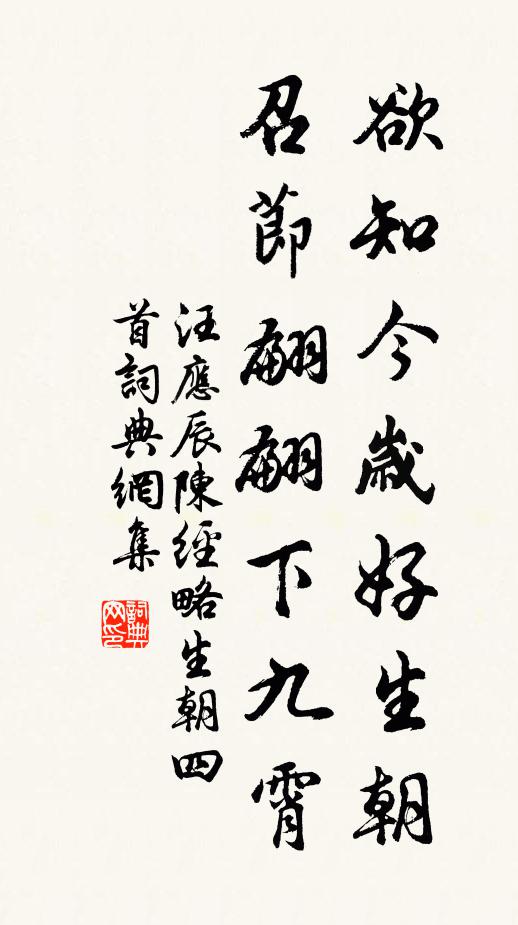 欲知今歲好生朝
召節翩翩下九霄
汪應辰陳經略生朝四
首詞典網集
詞典網印